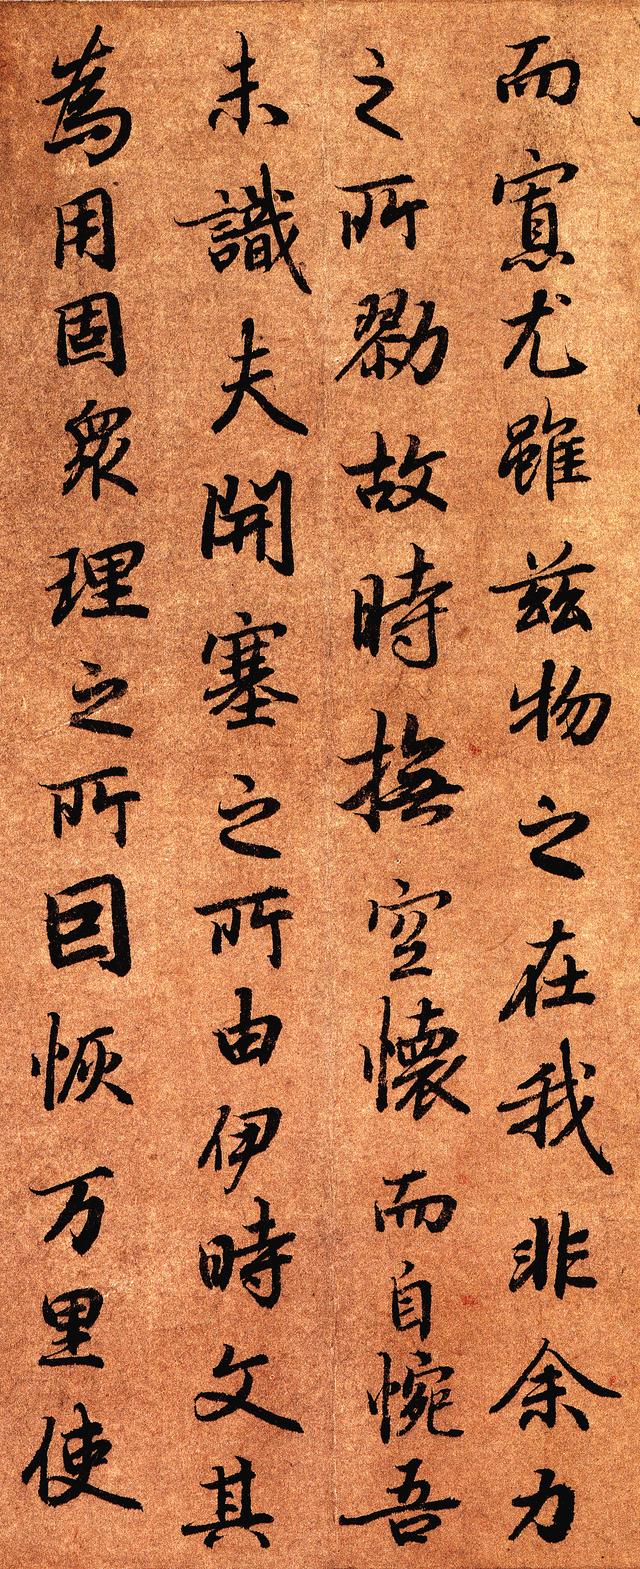 而寡尤雖茲物之在我非余力
之所勠故時撫空懷而自惋吾
未識夫開塞之所由伊時文其
為用固衆理之所因恢万里使